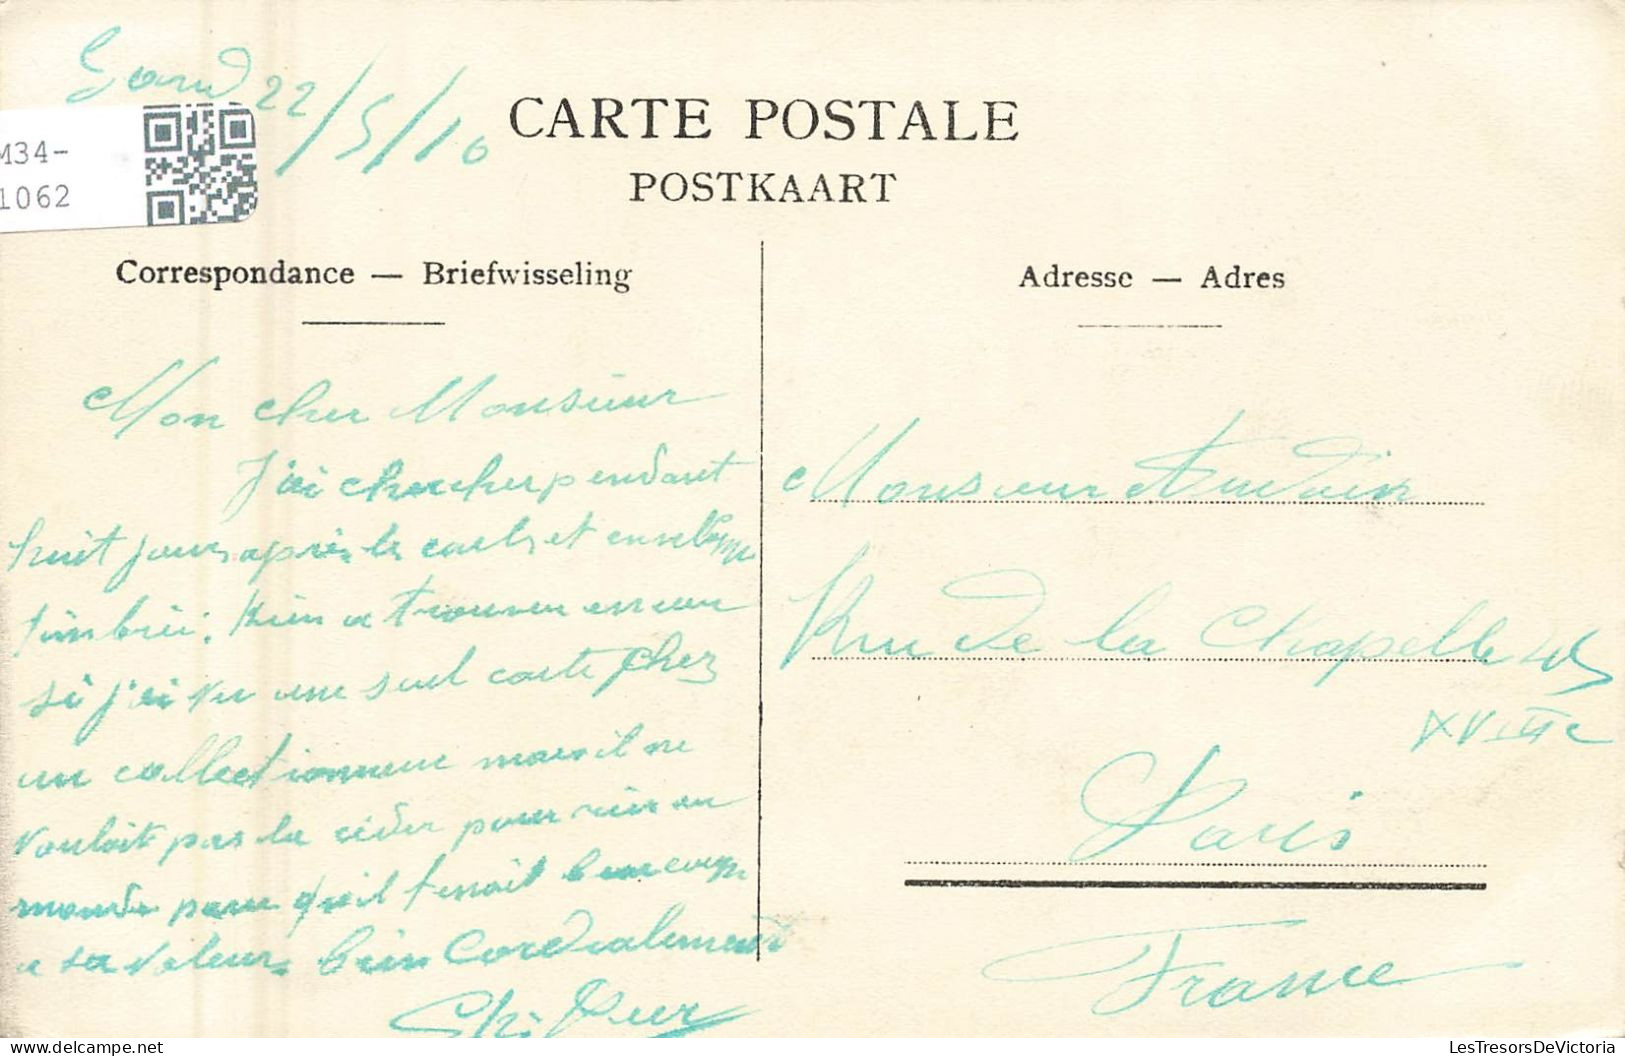 Gand 22/5/10
M34-
1062
CARTE POSTALE
POSTKAART
Correspondance — Briefwisseling
Adresse — Adres
Mon cher Monsieur
J'ai chercher pendant
huit jours après les cartes et
timbrée. Rien a trouver encour
si j'ai vu une seul carte chez
un collectionneur mais il ne
voulait pas la céder pour rien au
monde parce qu'il tenait beaucoup
a sa valeur. bien Cordialement
Monsieur Audoin
Rue de la Chapelle
XVIIIe
Paris
France
LesTresorsDeVictoria